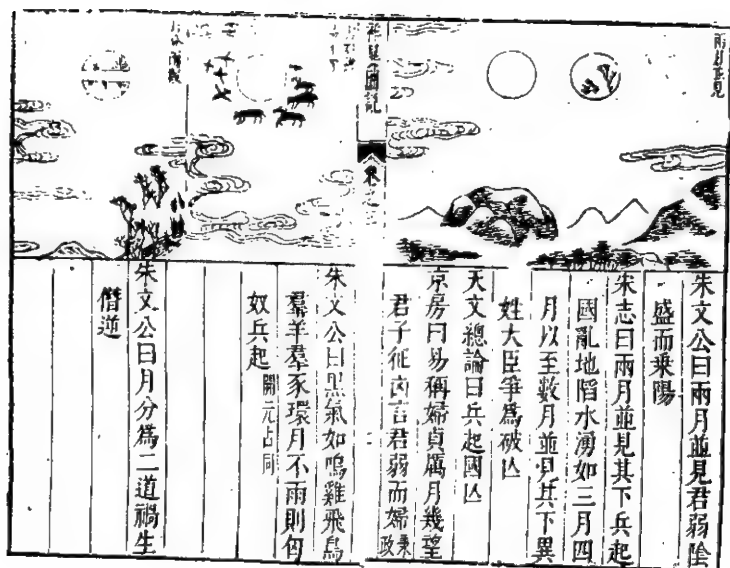 兩月並見
朱文公曰兩月並見君弱陰
盛而乗陽
宋志曰兩月並見其下兵起
國亂地㿽水湧如三月四
月以至數月並見其下異
姓大臣爭爲破亾
天文總論曰兵起國亾
京房曰易稱婦貞厲月幾望
君子征凶言君弱而婦乗
政
朱文公曰黑氣如鳴雞飛鳥
羣羊羣豕環月不雨則匈
奴兵起 開元占同
朱文公曰月分爲二道禍生
僭逆